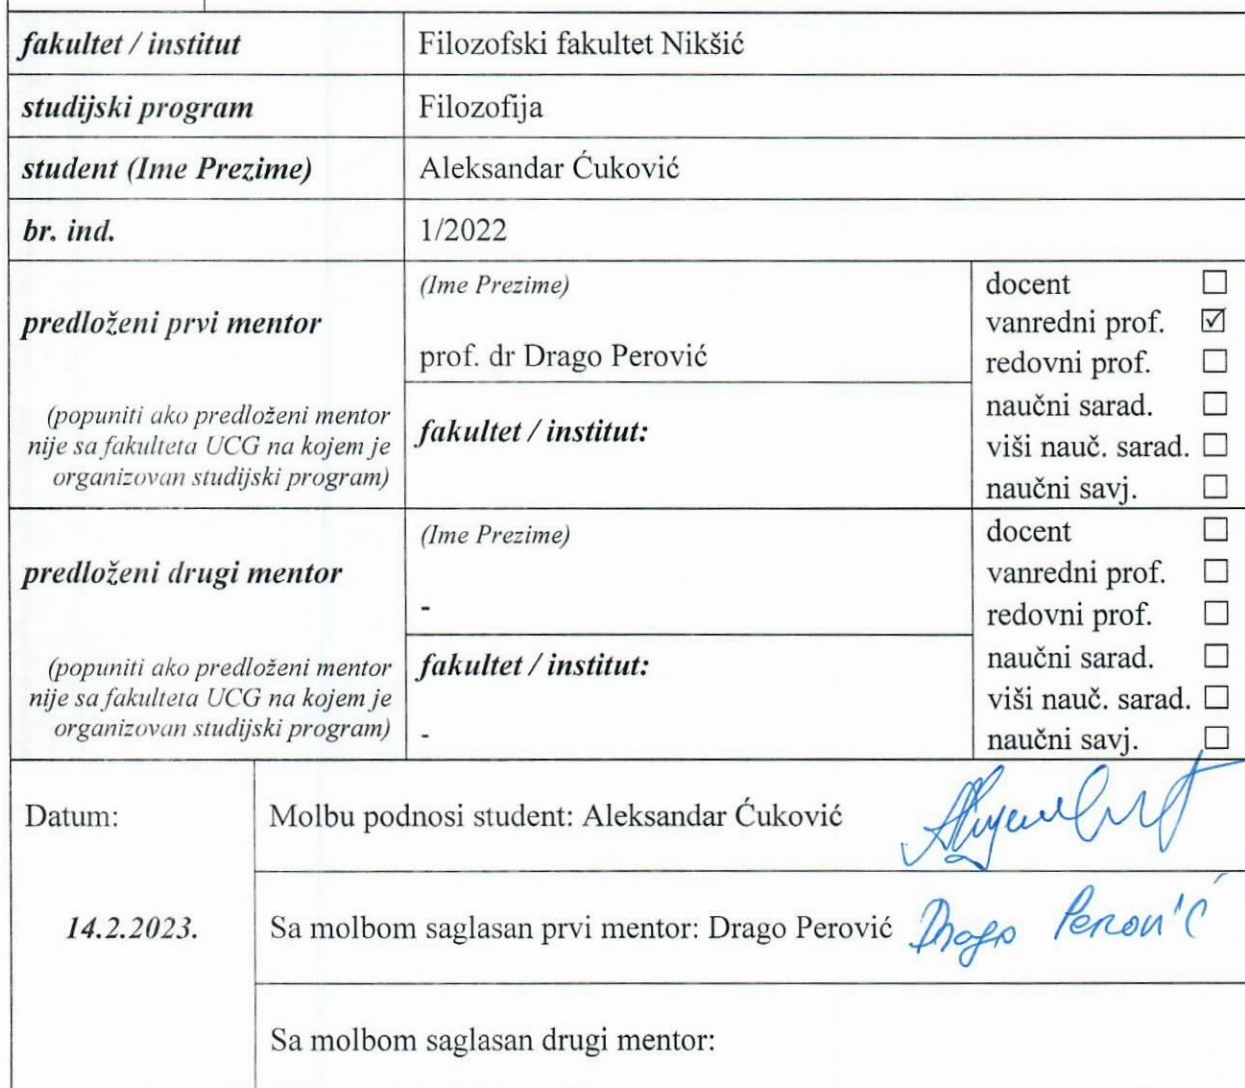 fakultet / institut
Filozofski fakultet Nikšić
studijski program
Filozofija
student (Ime Prezime)
Aleksandar Ćuković
br. ind.
1/2022
predloženi prvi mentor
(popuniti ako predloženi mentor
nije sa fakulteta UCG na kojem je
organizovan studijski program)
(Ime Prezime)
prof. dr Drago Perović
fakultet / institut:
docent ☐
vanredni prof. ☑
redovni prof. ☐
naučni sarad. ☐
viši nauč. sarad. ☐
naučni savj. ☐
predloženi drugi mentor
(popuniti ako predloženi mentor
nije sa fakulteta UCG na kojem je
organizovan studijski program)
(Ime Prezime)
-
fakultet / institut:
-
docent ☐
vanredni prof. ☐
redovni prof. ☐
naučni sarad. ☐
viši nauč. sarad. ☐
naučni savj. ☐
Datum:
14.2.2023.
Molbu podnosi student: Aleksandar Ćuković
Sa molbom saglasan prvi mentor: Drago Perović Drago Perović
Sa molbom saglasan drugi mentor: